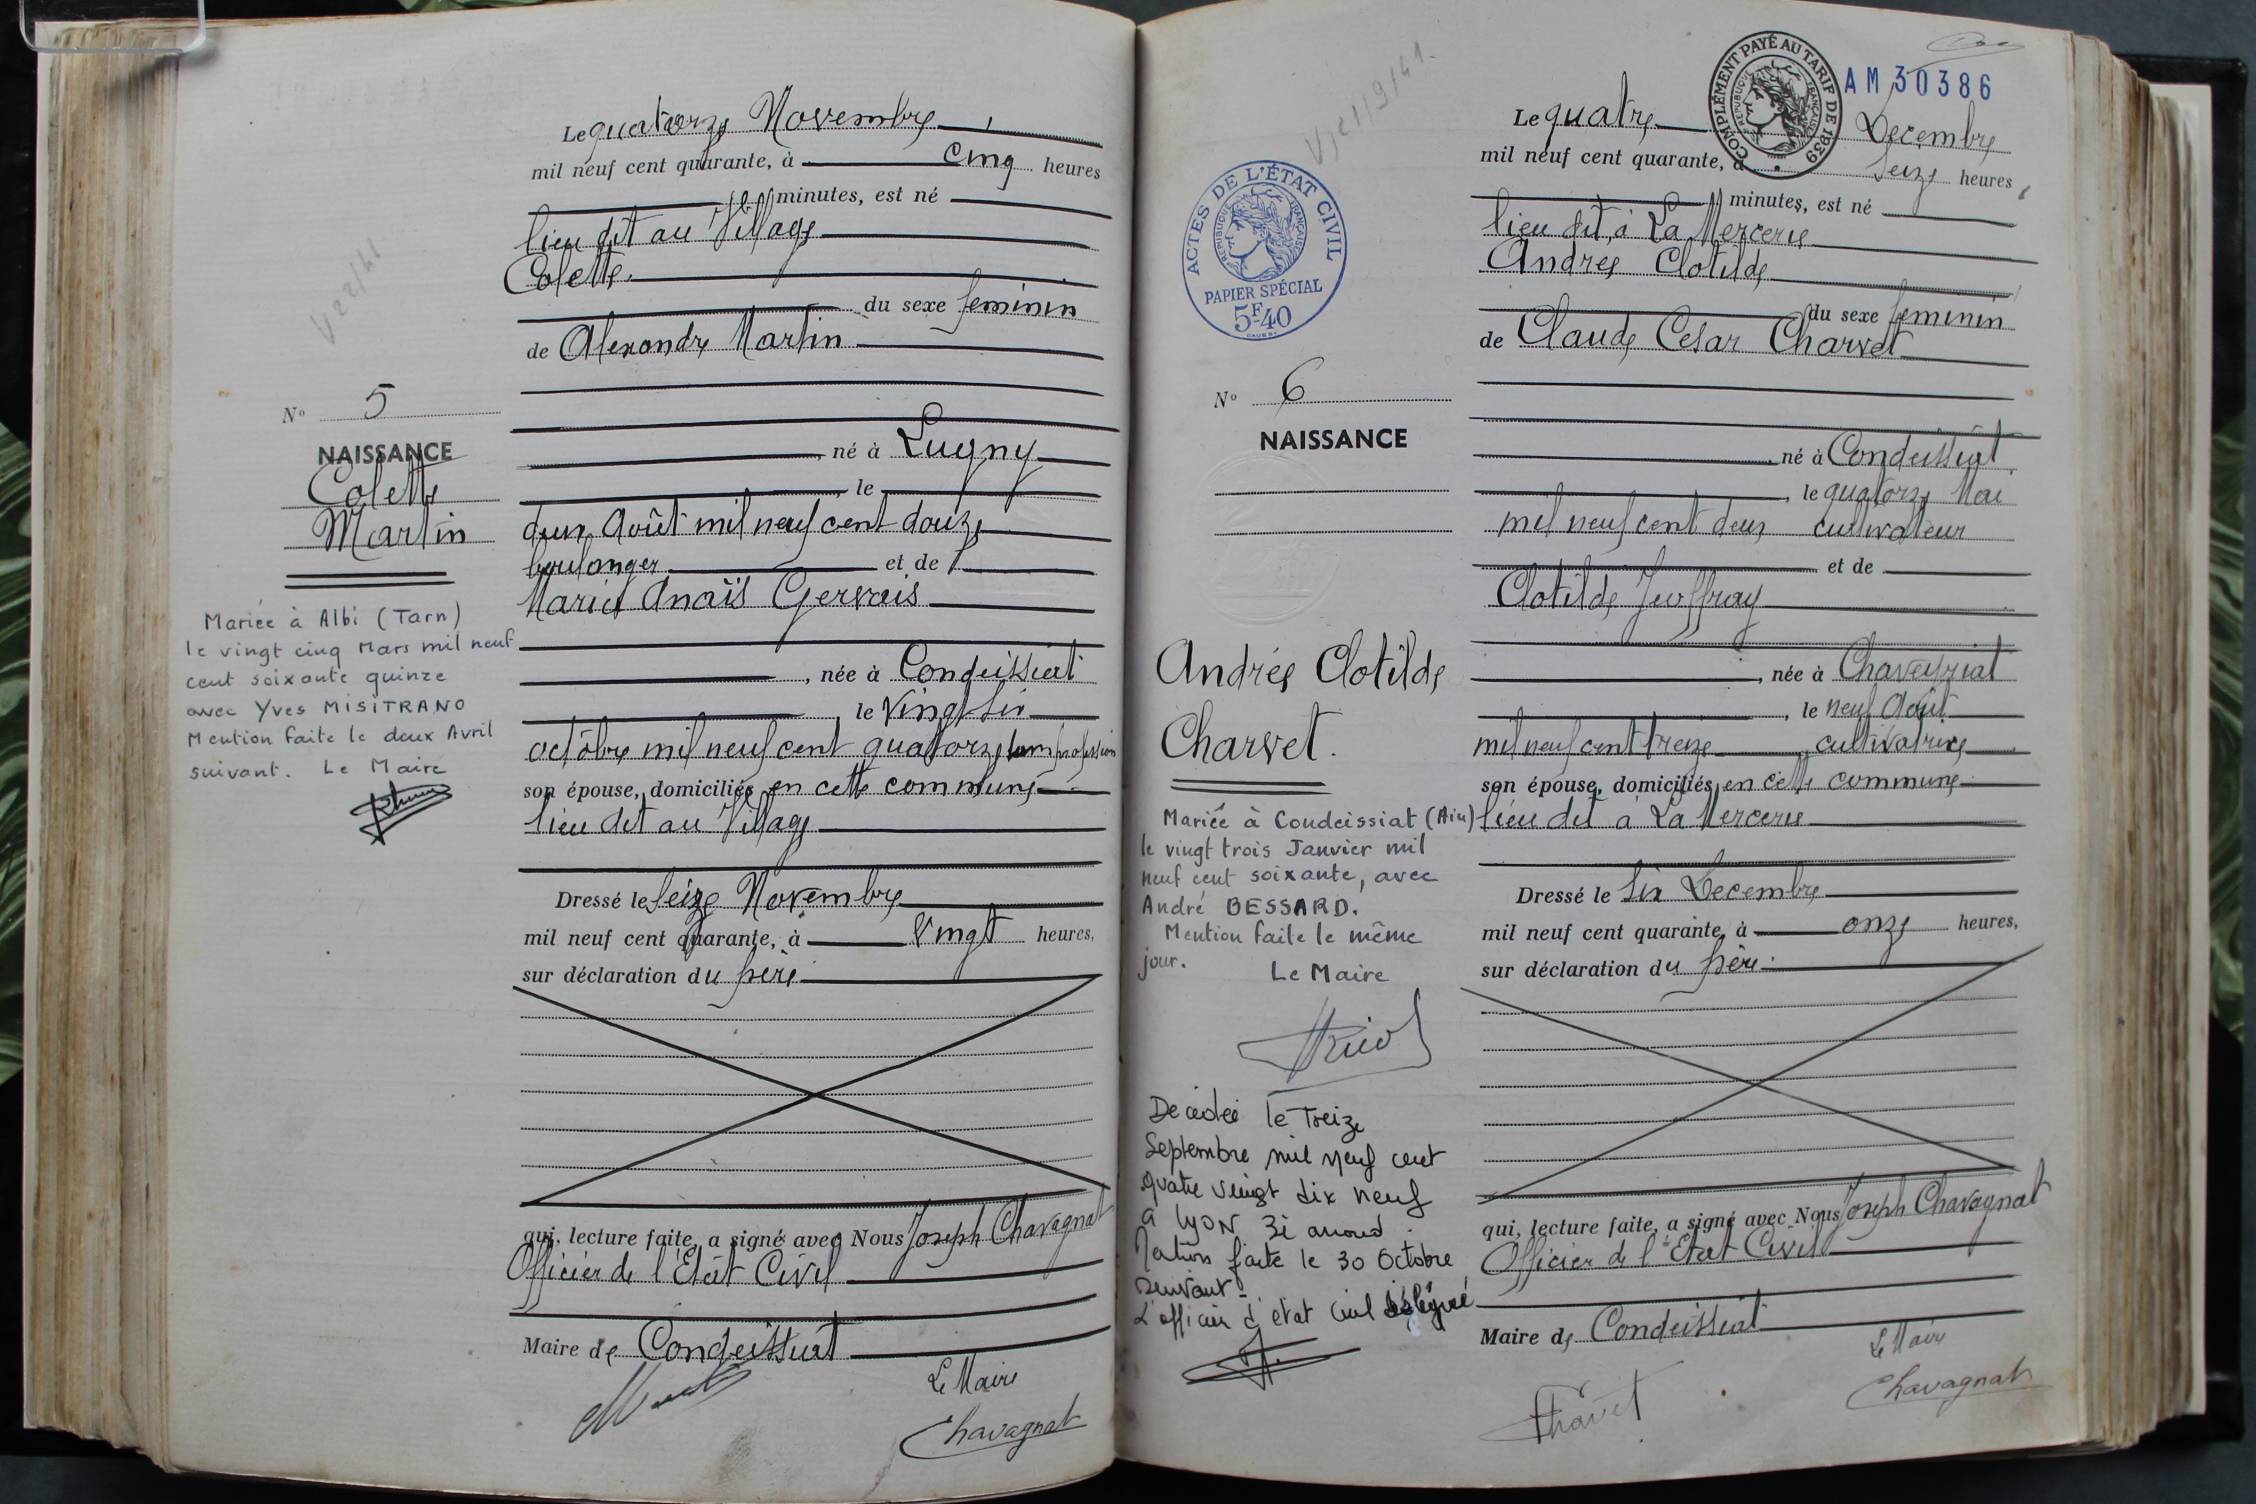 Le quatorze Novembre
mil neuf cent quarante, à cinq heures
minutes, est né
lieu dit au Village
Colette
du sexe feminin
de Alexandre Martin
né à Lugny
le
deux Août mil neuf cent douze
boulanger et de
Marie Anaïs Gervais
, née à Condeissiat
, le Vingt six
octobre mil neuf cent quatorze, sans profession
son épouse, domiciliés en cette commune
lieu dit au Village
Dressé le seize Novembre
mil neuf cent quarante, à Vingt heures,
sur déclaration du père
qui, lecture faite, a signé avec Nous Joseph Chavagnat
Officier de l'Etat Civil
Maire de Condeissiat
Le Maire
Chavagnat
V 22/41
N° 5
NAISSANCE
Colette
Martin
Mariée à Albi (Tarn)
le vingt cinq Mars mil neuf
cent soixante quinze
avec Yves MISITRANO
Mention faite le deux Avril
suivant. Le Maire
COMPLÉMENT PAYÉ AU TARIF DE 1939
RÉPUBLIQUE FRANÇAISE
AM 30386
Le quatre Decembre
mil neuf cent quarante, à seize heures
minutes, est né
lieu dit, à La Mercerie
Andrée Clotilde
du sexe feminin
de Claude César Charvet
né à Condeissiat
, le quatorze Mai
mil neuf cent deux cultivateur
et de
Clotilde Jeoffray
, née à Chaveyriat
, le neuf Août
mil neuf cent treize, cultivatrice
son épouse, domiciliés en cette commune
lieu dit à La Mercerie
Dressé le six Decembre
mil neuf cent quarante, à onze heures,
sur déclaration du père.
qui, lecture faite, a signé avec Nous Joseph Chavagnat
Officier de l'Etat Civil
Maire de Condeissiat
Le Maire
Chavagnat
Charvet
ACTES DE L'ÉTAT CIVIL
RÉPUBLIQUE FRANÇAISE
PAPIER SPÉCIAL
5F40
N° 6
NAISSANCE
Andrée Clotilde
Charvet.
Mariée à Condeissiat (Ain)
le vingt trois Janvier mil
neuf cent soixante, avec
André BESSARD.
Mention faite le même
jour. Le Maire
Decedée le Treize
Septembre mil neuf cent
quatre vingt dix neuf
à LYON 3è arrond.
Mention faite le 30 Octobre
suivant.
L'officier d'etat civil délégué